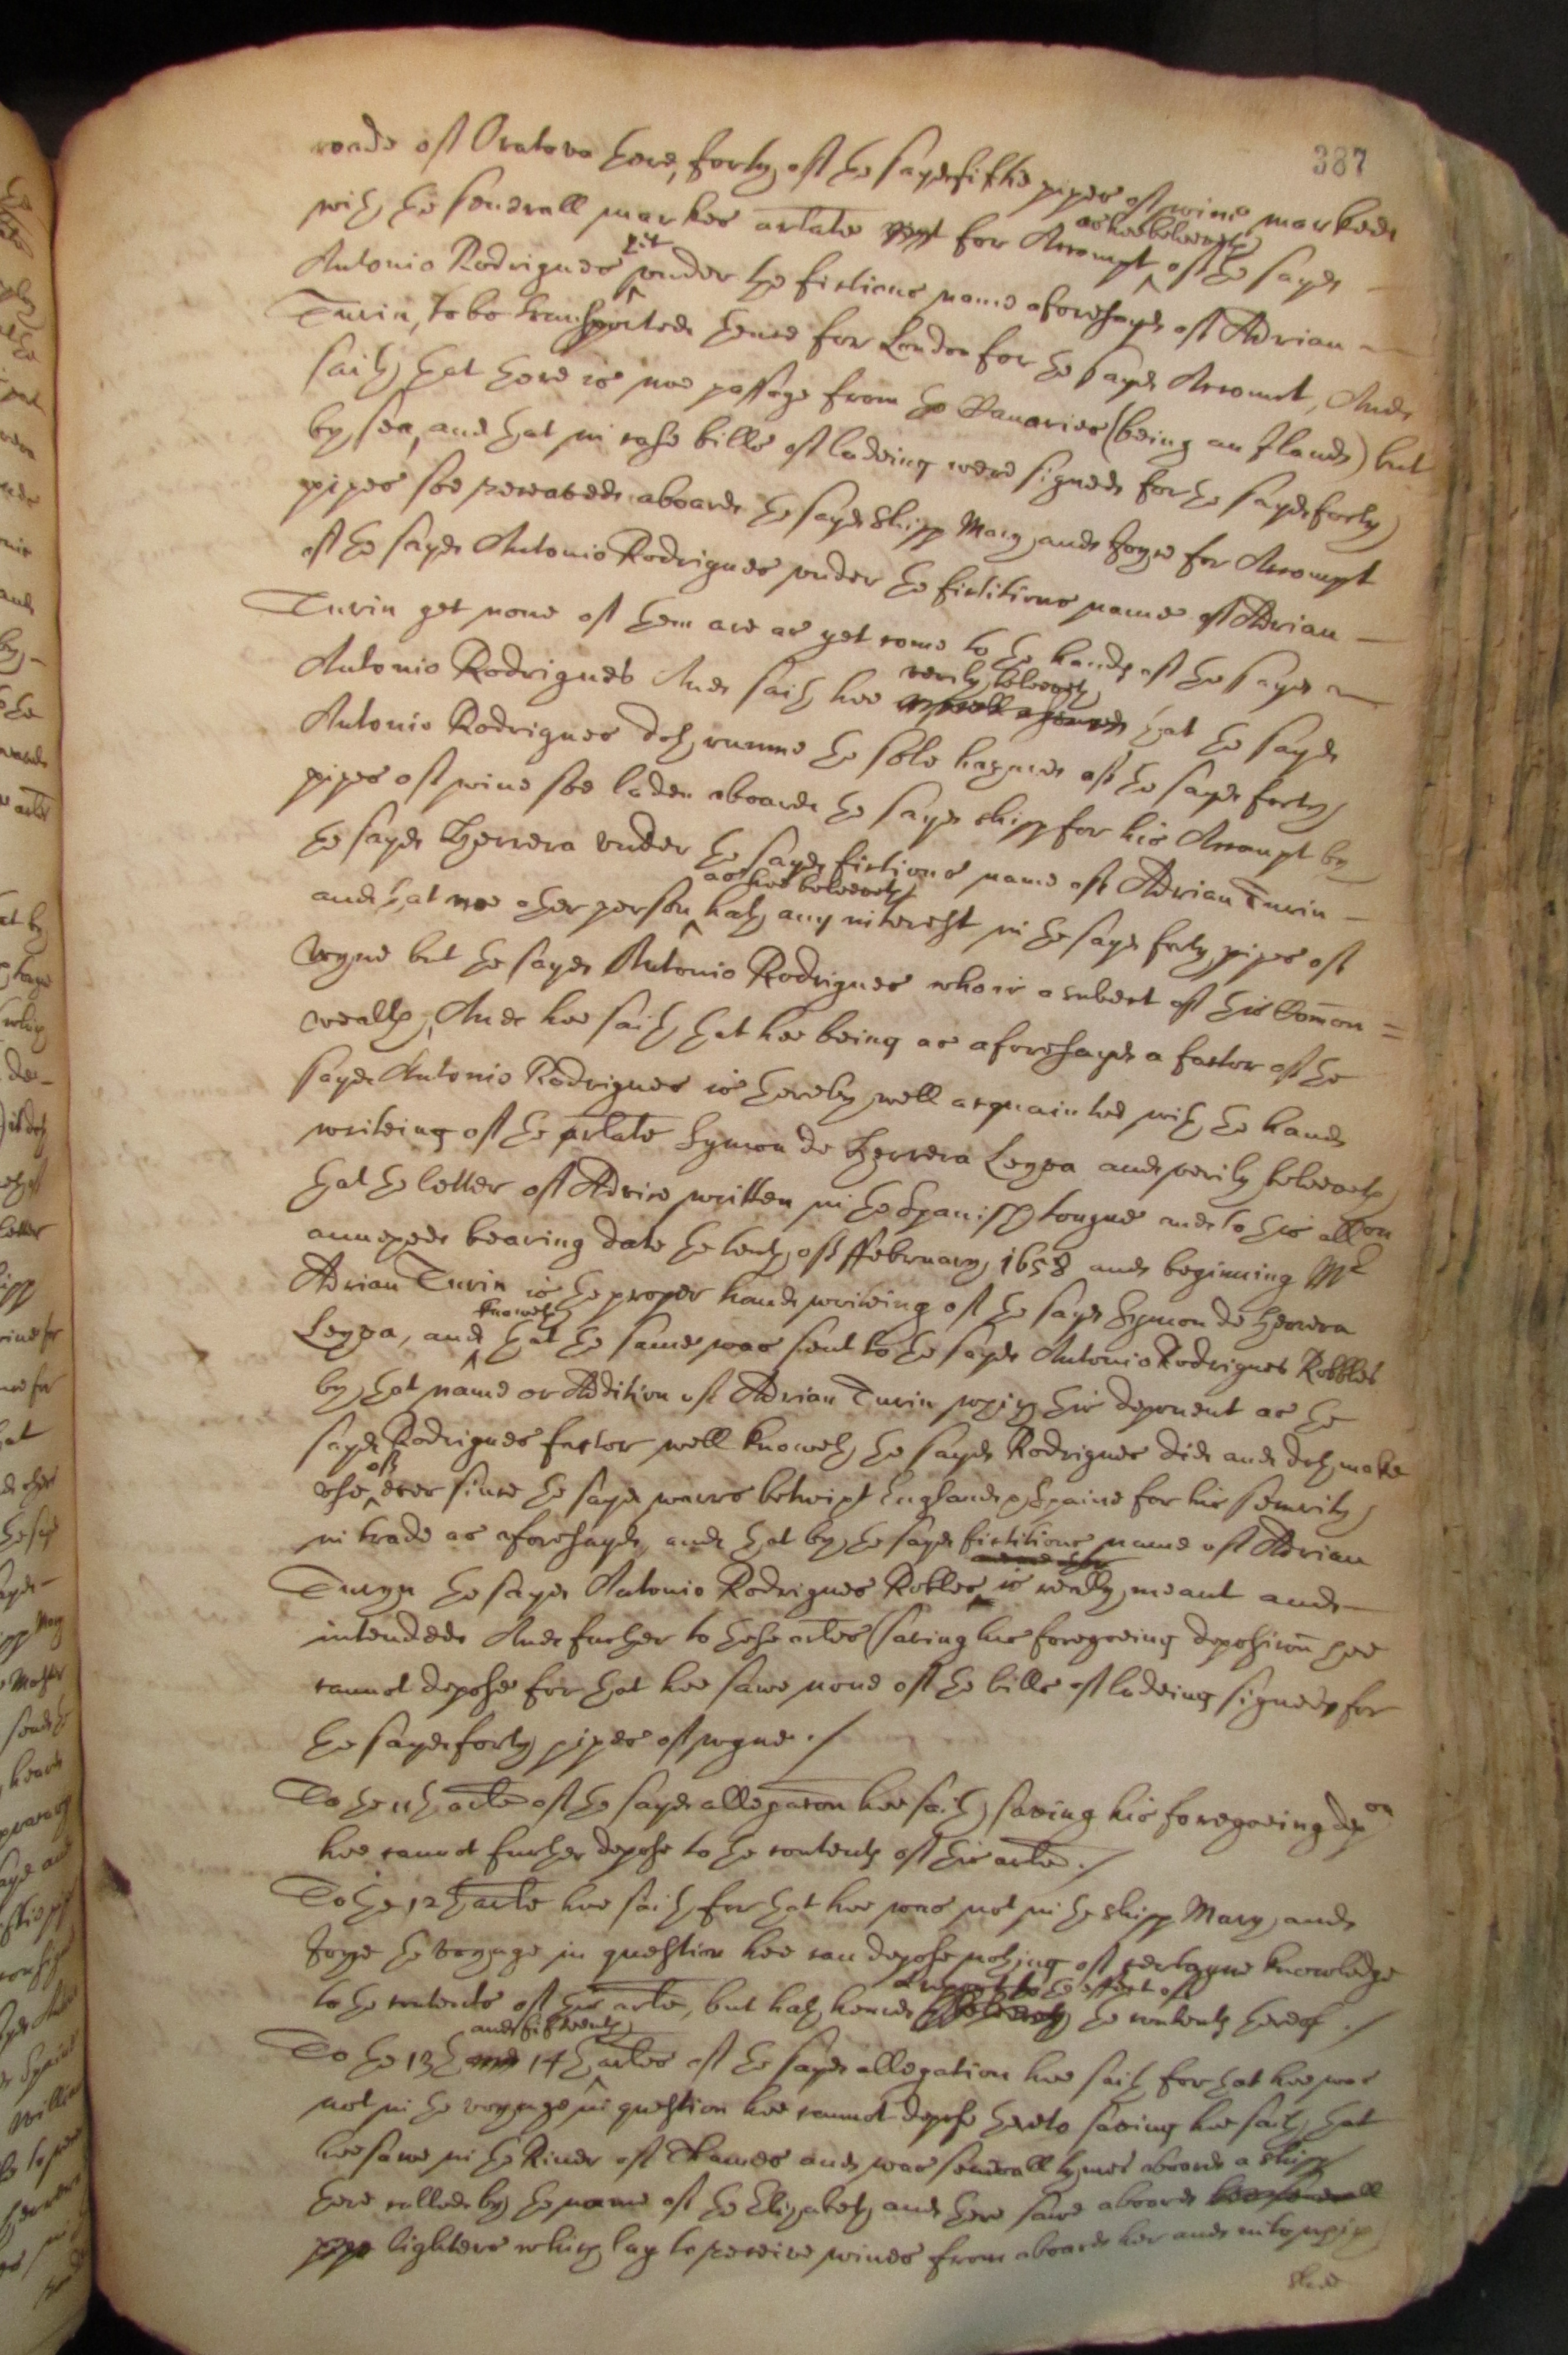 387
roade of Oratava there, forty of the sayd fiftie pipes of wine marked
with the severall markes arlate for Accompt as hee beleeveth of the sayd
Antonio Rodrigues yet under the fictious name aforesayd of Adrian
Turin, to be transported thence for London for the sayd Accompt, And
saith that there is noe passage from the Canaries (being an Iland) but
by sea, and that in case bills of lading were signed for the sayd forty
pipes soe receaved aboard the sayd shipp Mary and Joyce for Accompt
of the sayd Antonio Rodrigues under the fictitious name of Adrian
Turin yet none of them are as yet come to the hands of the sayd
Antonio Rodrigues And saith hee verily beleeveth that the sayd
Antonio Rodrigues doth runne the sole hazard of the sayd forty
pipes of wine soe laden aboard the sayd shipp for his Accompt by
the sayd Herrera under the sayd fictious name of Adrian Turin
and that noe other person as hee beleeveth hath any interest in the sayd forty pipes of
wyne but the sayd Antonio Rodrigues who is a subect of this Common=
wealth, And hee saith that hee being as aforesayd a factor of the
sayd Antonio Rodrigues is thereby well acquainted with the hand
writeing of the arlate Symon de Herrera Leyva and verily beleeveth
that the letter of Advice written in the Spanish tongue and to this allon
annexed bearing date the tenth of ffebruary 1658 and beginning Mr
Adrian Turin is the proper hand writeing of the sayd Symon de Herrera
Leyva, and knoweth that the same was sent to the sayd Antonio Rodrigues Robles
by that name or Addition of Adrian Turin which this deponent as the
sayd Rodrigues factor well knoweth the sayd Rodrigues did and doth make
use of ever since the sayd warrs betwixt England & Spaine for his security
in trade as aforesayd, and that by the sayd fictitious name of Adrian
Turyn the sayd Antonio Rodrigues Robles is really meant and
intended And further to these arles (saving his foregoeing deposicon hee
cannot depose for that hee sawe none of the bills of lading signed for
the sayd forty pipes of wyne ./
To the 11th arle of the sayd allegacon hee saith saving his foregoeing depon
hee cannot further depose to the contents of this arle ./
To the 12th arle hee saith for that hee was not in the shipp Mary and
Joyce the voyage in question hee can depose nothing of certayne knowledge
to the contents of this arle, but hath heard a report to the effect of the contents thereof ./
To the 13th 14th and fifteenth arles of the sayd allegation hee saith for that hee was
not in the voyage in question hee cannot depose thereto saving hee saith that
hee sawe in the River of Thames and was severall tymes aboard a shipp
there called by the name of the Elizabeth and there sawe aboard
lighters which lay to receive wines from aboard her and into which